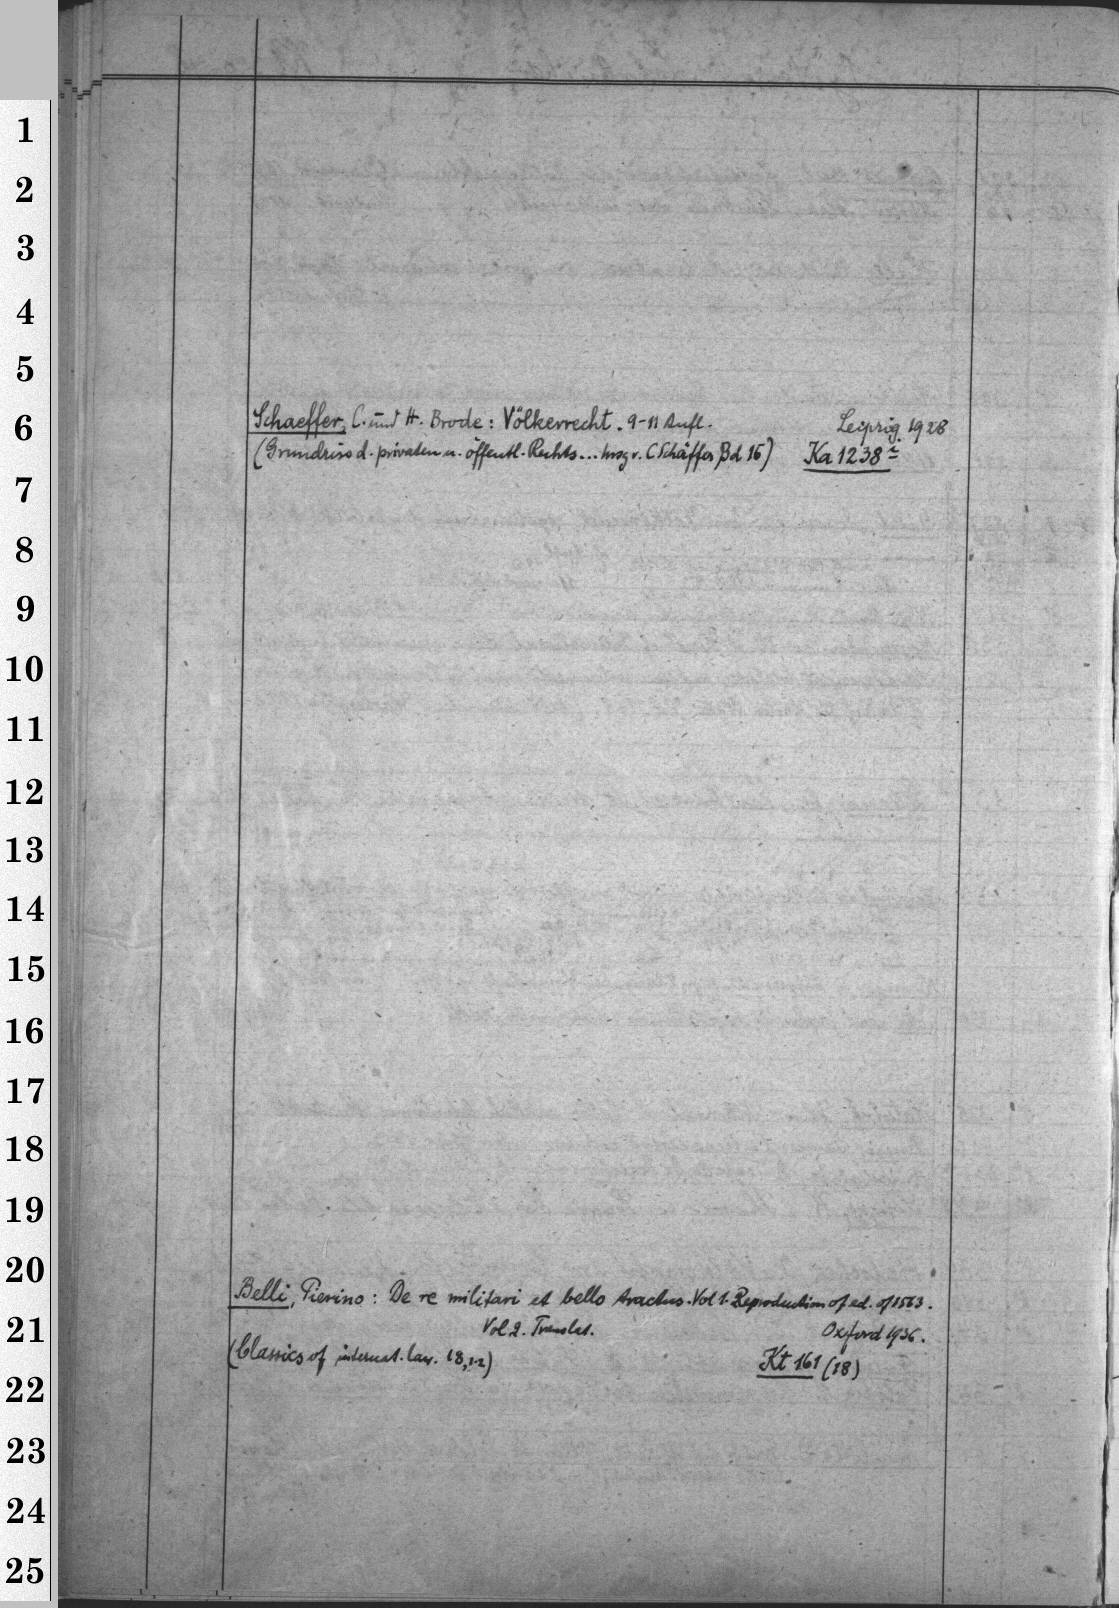 1
2
3
4
5
6
7
8
9
10
11
12
13
14
15
16
17
18
19
20
21
22
23
24
25
Schaeffer, C. und H. Brode: Völkerrecht. 9-11 Aufl. Leipzig 1928
(Grundriss d. privaten u. öffentl. Rechts... hrsg v. C Schäffer Bd 15) Ka 1238
Belli, Pierino: De re militari et bello tractus. Vol 1. Reproduction of ed. of 1563.
Vol 2. Translat. Oxford 1936.
(Classics of internat. law. 18,1-2) Kt 161 (18)